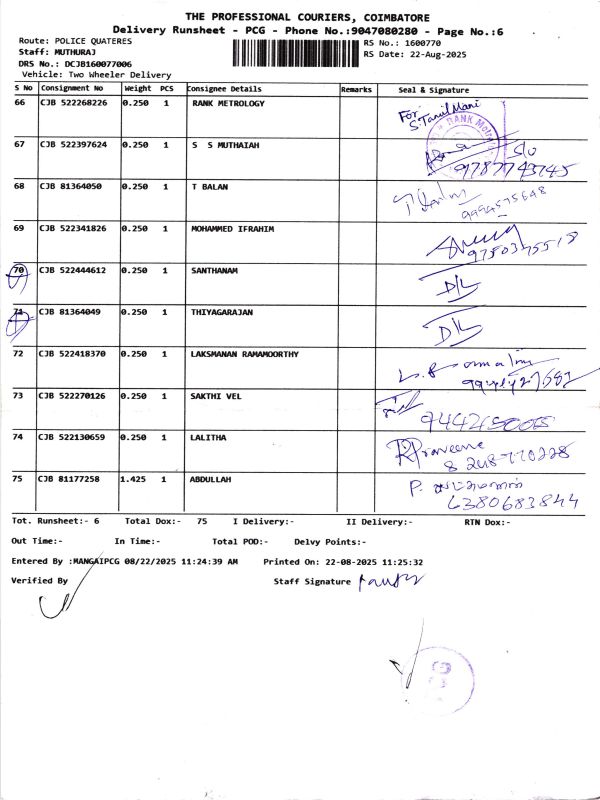 THE PROFESSIONAL COURIERS, COIMBATORE
Delivery Runsheet - PCG - Phone No.:9047080280 - Page No.:6
Route: POLICE QUATERES
RS No.: 1600770
Staff: MUTHURAJ
RS Date: 22-Aug-2025
DRS No.: DCJB160077006
Vehicle: Two Wheeler Delivery
S No Consignment No Weight PCS Consignee Details Remarks Seal & Signature
66 CJB 522268226 0.250 1 RANK METROLOGY For S.Tamil Mani
67 CJB 522397624 0.250 1 S S MUTHAIAH S/o 9787743745
68 CJB 81364050 0.250 1 T BALAN 9994575648
69 CJB 522341826 0.250 1 MOHAMMED IFRAHIM
70 CJB 522444612 0.250 1 SANTHANAM D/L
71 CJB 81364049 0.250 1 THIYAGARAJAN D/L
72 CJB 522418370 0.250 1 LAKSMANAN RAMAMOORTHY
73 CJB 522270126 0.250 1 SAKTHI VEL
74 CJB 522130659 0.250 1 LALITHA R.Praveena 8248770228
75 CJB 81177258 1.425 1 ABDULLAH P. 6380683844
Tot. Runsheet:- 6 Total Dox:- 75 I Delivery:- II Delivery:- RTN Dox:-
Out Time:- In Time:- Total POD:- Delvy Points:-
Entered By :MANGAIPCG 08/22/2025 11:24:39 AM Printed On: 22-08-2025 11:25:32
Verified By Staff Signature